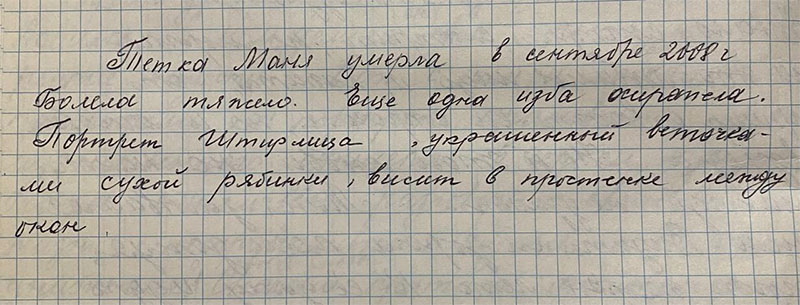 Тетка Маня умерла в сентябре 2008 г
Болела тяжело. Еще одна изба осиротела.
Портрет Штирлица, украшенный веточка-
ми сухой рябинки, висит в простенке между
окон.